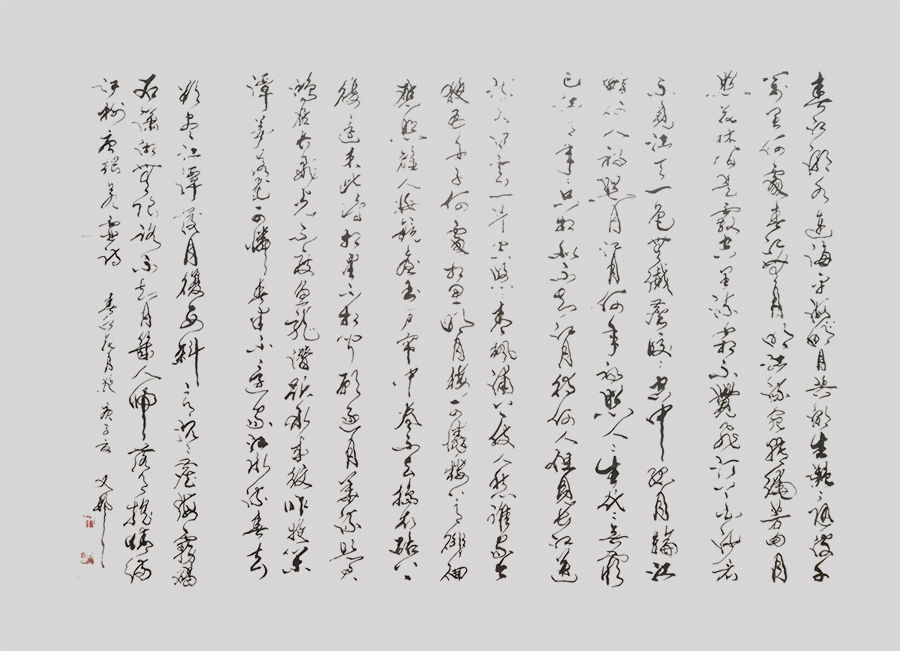 春江潮水連海平海上明月共潮生灩灩隨波千
萬里何處春江無月明江流宛轉繞芳甸月
照花林皆似霰空里流霜不覺飛汀上白沙看
不見江天一色無纖塵皎皎空中孤月輪江
畔何人初見月江月何年初照人人生代代無窮
已江月年年只相似不知江月待何人但見長江送
流水白雲一片去悠悠青楓浦上不勝愁誰家今
夜扁舟子何處相思明月樓可憐樓上月徘徊
應照離人妝鏡臺玉戶簾中卷不去擣衣砧上
拂還來此時相望不相聞願逐月華流照君
鴻雁長飛光不度魚龍潛躍水成文昨夜閑
潭夢落花可憐春半不還家江水流春去
欲盡江潭落月復西斜斜月沉沉藏海霧碣
石瀟湘無限路不知乘月幾人歸落月搖情滿
江樹 唐張若虛詩 春江花月夜 庚子